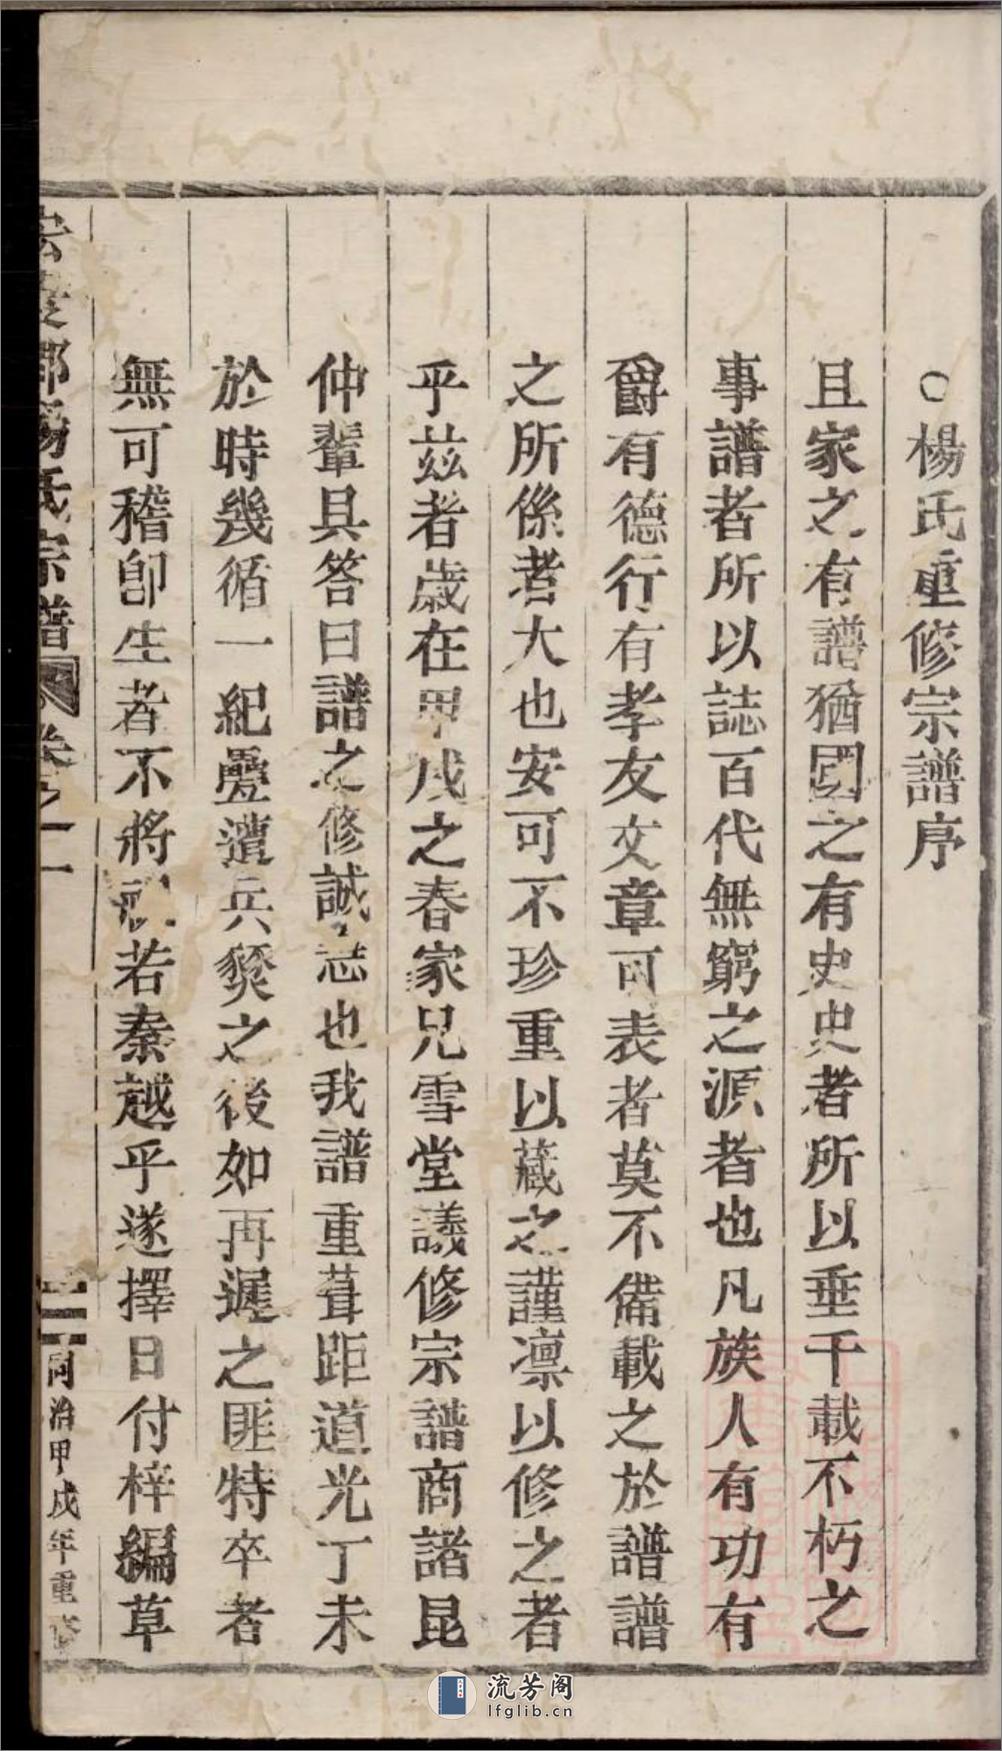 ○楊氏重修宗譜序
且家之有譜猶國之有史史者所以垂千載不朽之
事譜者所以誌百代無窮之源者也凡族人有功有
爵有德行有孝友文章可表者莫不備載之於譜譜
之所係者大也安可不珍重以藏之謹凛以修之者
乎茲者歲在甲戌之春家兄雪堂議修宗譜商諸昆
仲輩具答曰譜之修誠急也我譜重葺距道光丁未
於時幾循一紀疊遭兵燹之後如再遲之匪特卒者
無可稽卽生者不將視若秦越乎遂擇日付梓編草
楊氏宗譜 卷之一
二 同治甲戌年重修
流芳阁
lfglib.cn